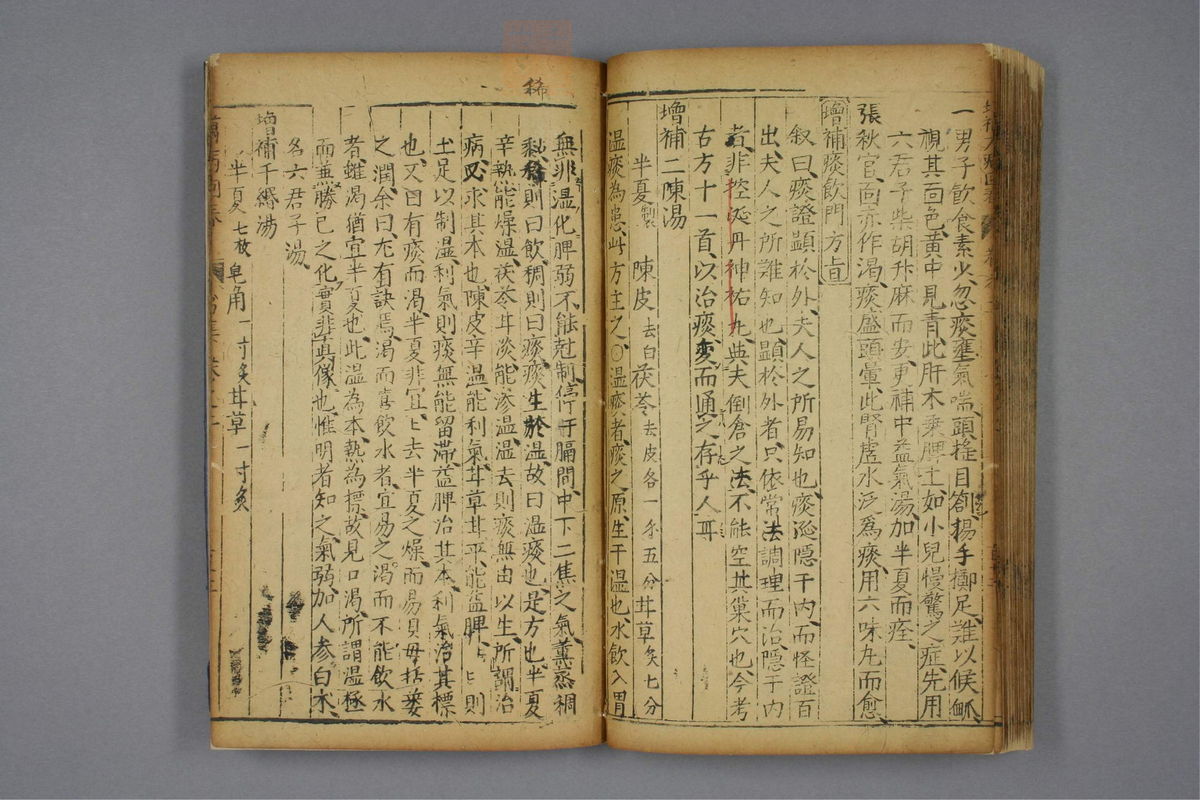 一男子飲食素少、忽痰壅氣喘、頭搖目劄、揚手擲足、難以候脈、
視其面色黃中見青、此肝木乘脾土、如小兒慢驚之症、先用
六君子柴胡升麻而安、更補中益氣湯加半夏而痊、
張秋官面亦作渴、痰盛頭暈、此腎虛水泛為痰、用六味丸而愈、
增補痰飲門方旨
叙曰、痰證顯於外、夫人之所易知也、痰涎隱于內、而怪證百
出、夫人之所難知也、顯於外者、只依常法調理而治、隱于內
者、非控涎丹神祐丸、與夫倒倉之法、不能空其巢穴也、今考
古方十一首、以治痰、變而通之、存乎人耳
增補二陳湯
半夏製 陳皮去白 茯苓去皮各一錢五分 甘草炙七分
溫痰為患、此方主之、〇溫痰者、痰之原、生于溫也、水飲入胃
無非溫化、脾弱不能尅制、停於膈間、中下二焦之氣、薰蒸稠
黏、稀則曰飲、稠則曰痰、痰生於溫、故曰溫痰也、是方也、半夏
辛執、能燥溫、茯苓甘淡、能滲溫、溫去則痰無由以生、所謂治
病必求其本也、陳皮辛溫、能利氣、甘草甘平、能益脾、脾則
土足以制溫、利氣則痰無能留滯、益脾治其本、利氣治其標
也、又曰、有痰而渴、半夏非宜、宜去半夏之燥、而易貝母括蔞
之潤、余曰、尤有訣焉、渴而喜飲水者、宜易之、渴而不能飲水
者、雖渴猶宜半夏也、此溫為本、熱為標、故見口渴、所謂溫極
而兼勝己之化、實非真像也、惟明者知之、氣弱加人參白朮、
名六君子湯、
增補千緡湯
半夏七枚 皂角一寸炙 甘草一寸炙
稀